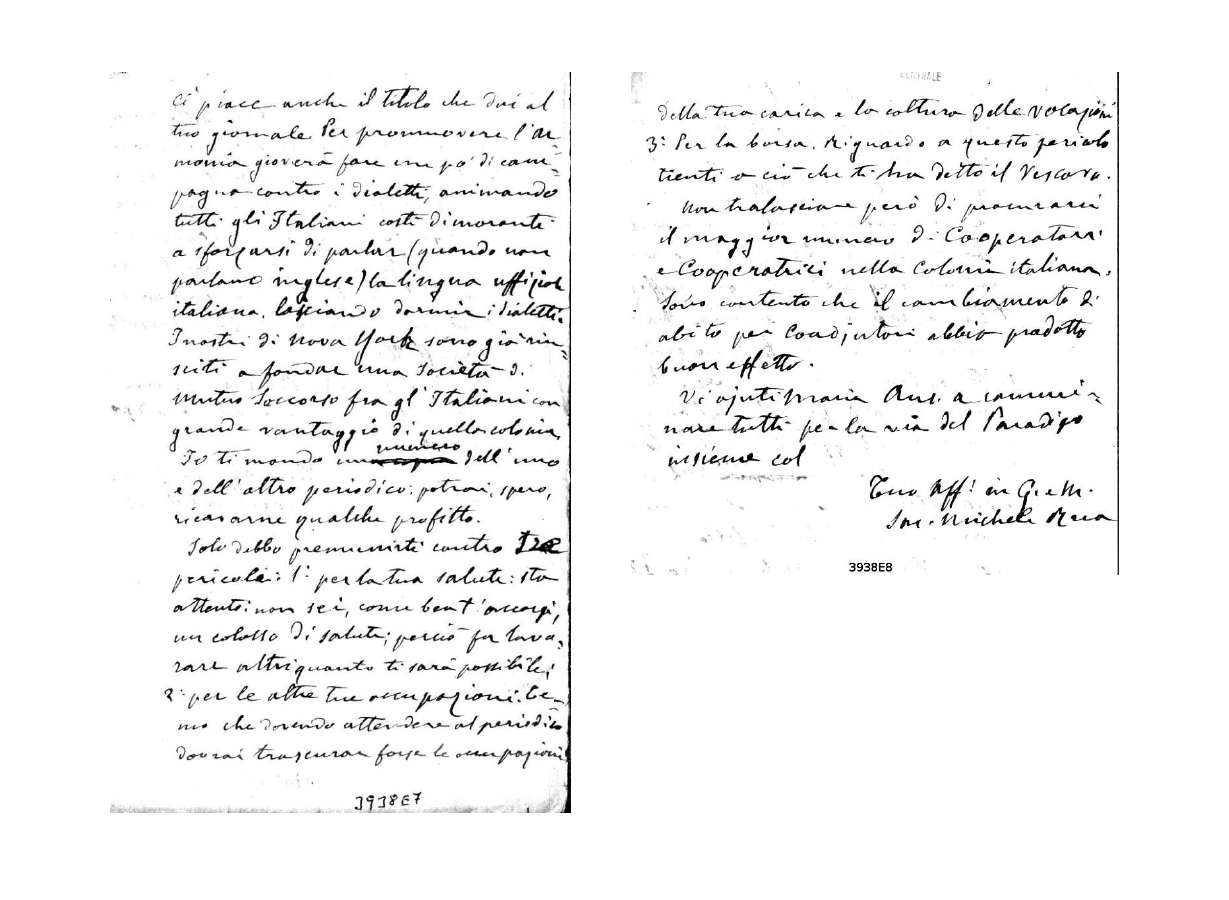 ci piace anche il titolo che dai al
tuo giornale Per promuovere l'ar-
monia gioverà fare un po' di cam-
pagna contro i dialetti, animando
tutti gli Italiani costì dimoranti
a sforzarsi di parlar (quando non
parlano inglese) la lingua uffiziale
italiana, lasciando dormir i dialetti.
I nostri di Nova York sono già riu-
sciti a fondar una Società di
Mutuo Soccorso fra gl'Italiani con
grande vantaggio di quella colonia.
numero
Io ti mando un dell'uno
e dell'altro periodico: potrai, spero,
ricavarne qualche profitto.
Solo debbo premunirti contro Tre
pericoli: 1° per la tua salute: sta
attento: non sei, come ben t'accorgi,
un colosso di salute; perciò fa lavo-
rare altri quanto ti sarà possibile;
2° per le altre tue occupazioni. Te-
mo che dovendo attendere al periodico
dovrai trascurar forse le occupazioni
3938E7
della tua carica e la coltura delle vocazioni
3° Per la borsa. Riguardo a questo pericolo
tienti a ciò che ti ha detto il Vescovo.
Non tralasciare però di procurarci
il maggior numero di Cooperatori
e Cooperatrici nella Colonia italiana.
Sono contento che il cambiamento di
abito pei Coadjutori abbia prodotto
buon effetto.
Vi ajuti Maria Aus. a cammi-
nare tutti per la via del Paradiso
insieme col
Tuo Aff.° in G. e M.
Sac. Michele Rua
3938E8